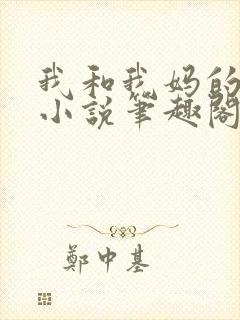 我和我妈的
小説筆趣閣
鄭中基